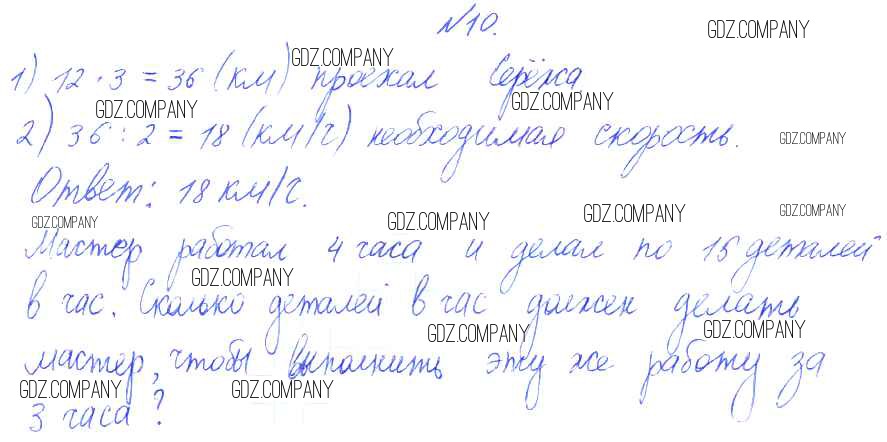 №10.
GDZ.COMPANY
1) 12 · 3 = 36 (км) проехал Серёжа.
GDZ.COMPANY
GDZ.COMPANY GDZ.COMPANY
2) 36 : 2 = 18 (км/ч) необходимая скорость.
GDZ.COMPANY
Ответ: 18 км/ч.
GDZ.COMPANY GDZ.COMPANY GDZ.COMPANY GDZ.COMPANY
Мастер работал 4 часа и делал по 15 деталей
GDZ.COMPANY
в час. Сколько деталей в час должен делать
GDZ.COMPANY GDZ.COMPANY
мастер, чтобы выполнить эту же работу за
GDZ.COMPANY GDZ.COMPANY
3 часа?